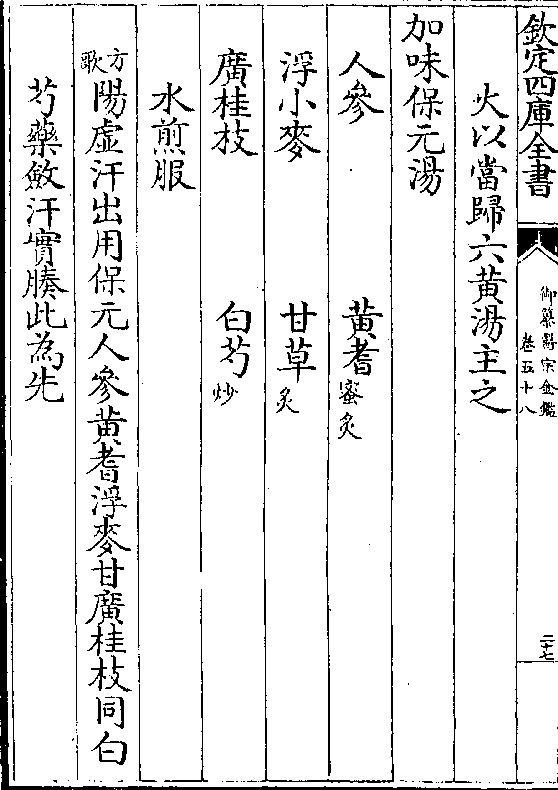 欽定四庫全書
御纂醫宗金鑑
卷五十八
二十七
火以當歸六黃湯主之
加味保元湯
人參 黃耆蜜炙
浮小麥 甘草炙
廣桂枝 白芍炒
水煎服
方歌 陽虛汗出用保元人參黃耆浮麥甘廣桂枝同白
芍藥斂汗實腠此為先